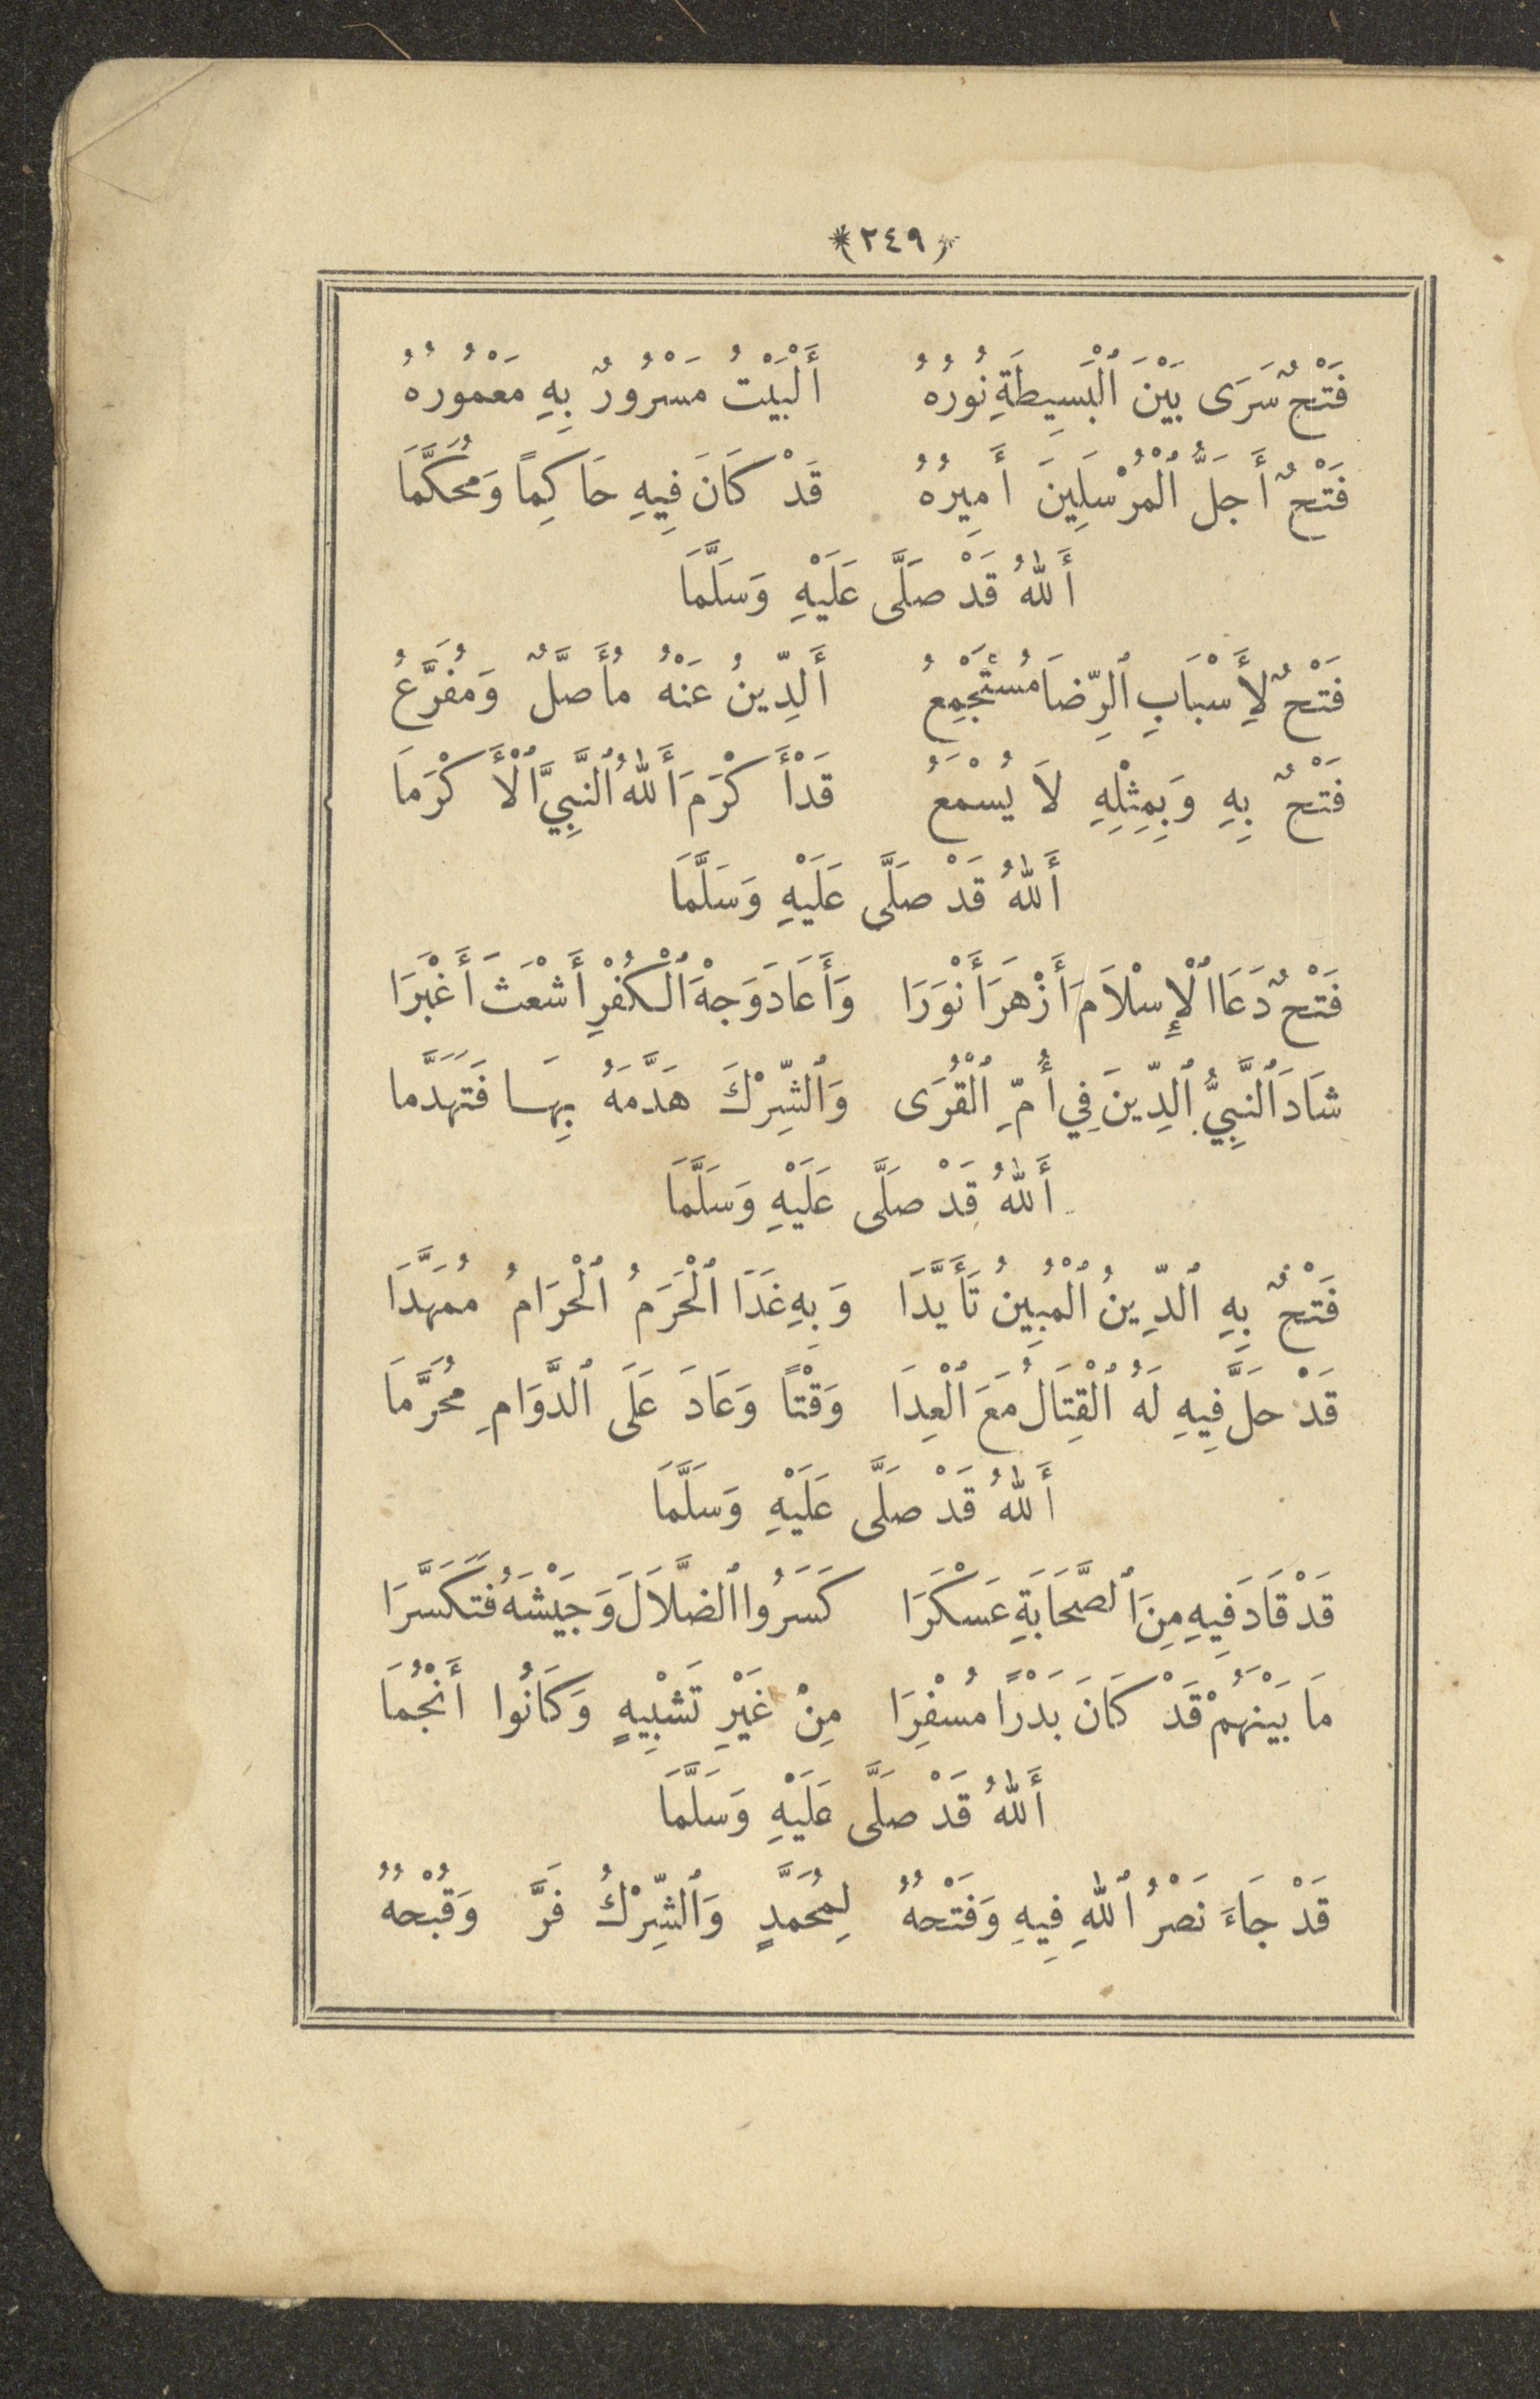 ﴿٢٤٩﴾
فَتْحٌ سَرَى بَيْنَ ٱلْبَسِيطَةِ نُورُهُ أَلْبَيْتُ مَسْرُورٌ بِهِ مَعْمُورُهُ
فَتْحٌ أَجَلُّ ٱلْمُرْسَلِينَ أَمِيرُهُ قَدْ كَانَ فِيهِ حَاكِمًا وَمُحَكَّمَا
أَللهُ قَدْ صَلَّى عَلَيْهِ وَسَلَّمَا
فَتْحٌ لِأَسْبَابِ ٱلرِّضَا مُسْتَجْمِعُ أَلدِّينُ عَنْهُ مُأَصَّلٌ وَمُفَرَّعُ
فَتْحٌ بِهِ وَبِمِثْلِهِ لَا يُسْمَعُ قَدْ أَكْرَمَ أَللهُ ٱلنَّبِيَّ ٱلْأَكْرَمَا
أَللهُ قَدْ صَلَّى عَلَيْهِ وَسَلَّمَا
فَتْحٌ دَعَا ٱلْإِسْلَامَ أَزْهَرَ أَنْوَرَا وَأَعَادَ وَجْهَ ٱلْكُفْرِ أَشْعَثَ أَغْبَرَا
شَادَ ٱلنَّبِيُّ ٱلدِّينَ فِي أُمِّ ٱلْقُرَى وَٱلشِّرْكَ هَدَّمَهُ بِهَا فَتَهَدَّمَا
أَللهُ قَدْ صَلَّى عَلَيْهِ وَسَلَّمَا
فَتْحٌ بِهِ ٱلدِّينُ ٱلْمُبِينُ تَأَيَّدَا وَبِهِ غَدَا ٱلْحَرَمُ ٱلْحَرَامُ مُمَهَّدَا
قَدْ حَلَّ فِيهِ لَهُ ٱلْقِتَالُ مَعَ ٱلْعِدَا وَقْتًا وَعَادَ عَلَى ٱلدَّوَامِ مُحَرَّمَا
أَللهُ قَدْ صَلَّى عَلَيْهِ وَسَلَّمَا
قَدْ قَادَ فِيهِ مِنَ ٱلصَّحَابَةِ عَسْكَرَا كَسَرُوا ٱلضَّلَالَ وَجَيْشَهُ فَتَكَسَّرَا
مَا بَيْنَهُمْ قَدْ كَانَ بَدْرًا مُسْفِرَا مِنْ غَيْرِ تَشْبِيهٍ وَكَانُوا أَنْجُمَا
أَللهُ قَدْ صَلَّى عَلَيْهِ وَسَلَّمَا
قَدْ جَاءَ نَصْرُ ٱللهِ فِيهِ وَفَتْحُهُ لِمُحَمَّدٍ وَٱلشِّرْكُ فَرَّ وَقُبْحُهُ